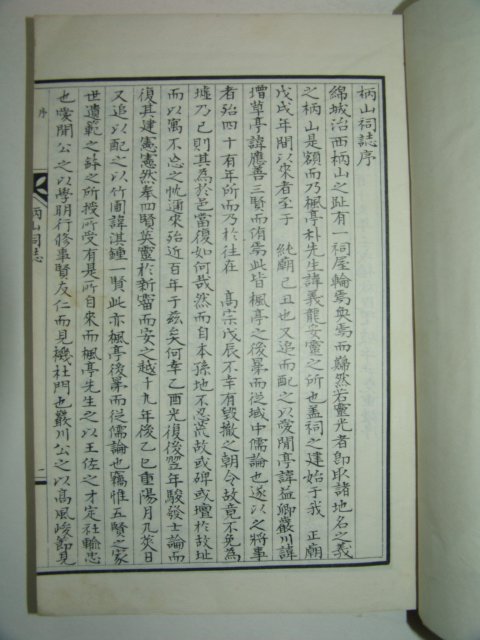 柄山祠誌序
綿城治西柄山之趾有一祠屋輪焉奐焉而巋然若靈光者卽取諸地名之義
之柄山是額而乃楓亭朴先生諱義龍安靈之所也盖祠之建始于我 正廟
戊戌年間以來者至于 純廟己丑也又追而配之以愛閒亭諱益卿巖川諱
增草亭諱應善三賢而侑焉此皆楓亭之後昴而從域中儒論也遂以之將事
者殆四十有年所而乃於往在 高宗戊辰不幸有毀撤之朝令故竟不免爲
墟乃已則其爲於邑當復如何哉然而自本孫地不忍荒故或碑或壇於故址
而以寓不忘之忱通來殆近百年于玆矣何幸乙酉光復後翌年駿發士論而
復其建憲憲然奉四賢英靈於新甯而安之越十九年後乙巳重陽月九莢日
又追以配之以竹圃諱淇鍾一賢此亦楓亭後昴而從儒論也竊惟五賢之家
世遺範之薛之所授所受有是所自來而楓亭先生之以王佐之才定社輸忠
也愛閒公之以學明行修事賢友仁而見禨杜門也巖川公之以高風峻節見
序
柄山祠誌
一